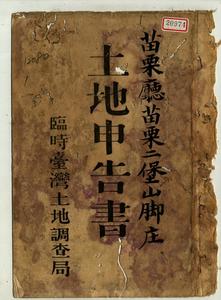 20974
苗栗廳苗栗二堡山脚庄
土地申告書
臨時臺灣土地調查局